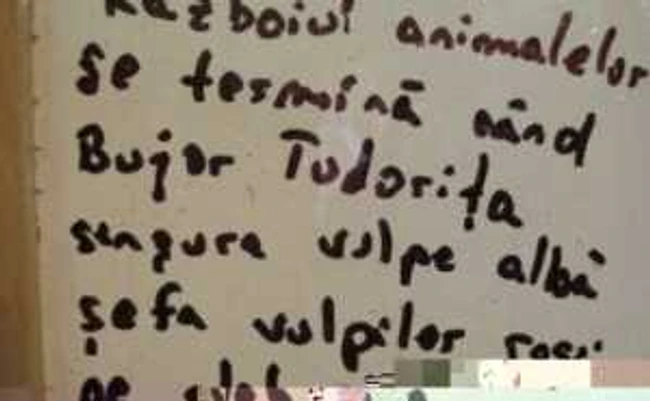 Războiul animalelor
se termină când
Bujor Tudorița
singura vulpe albă
șefa vulpilor roșii
pe